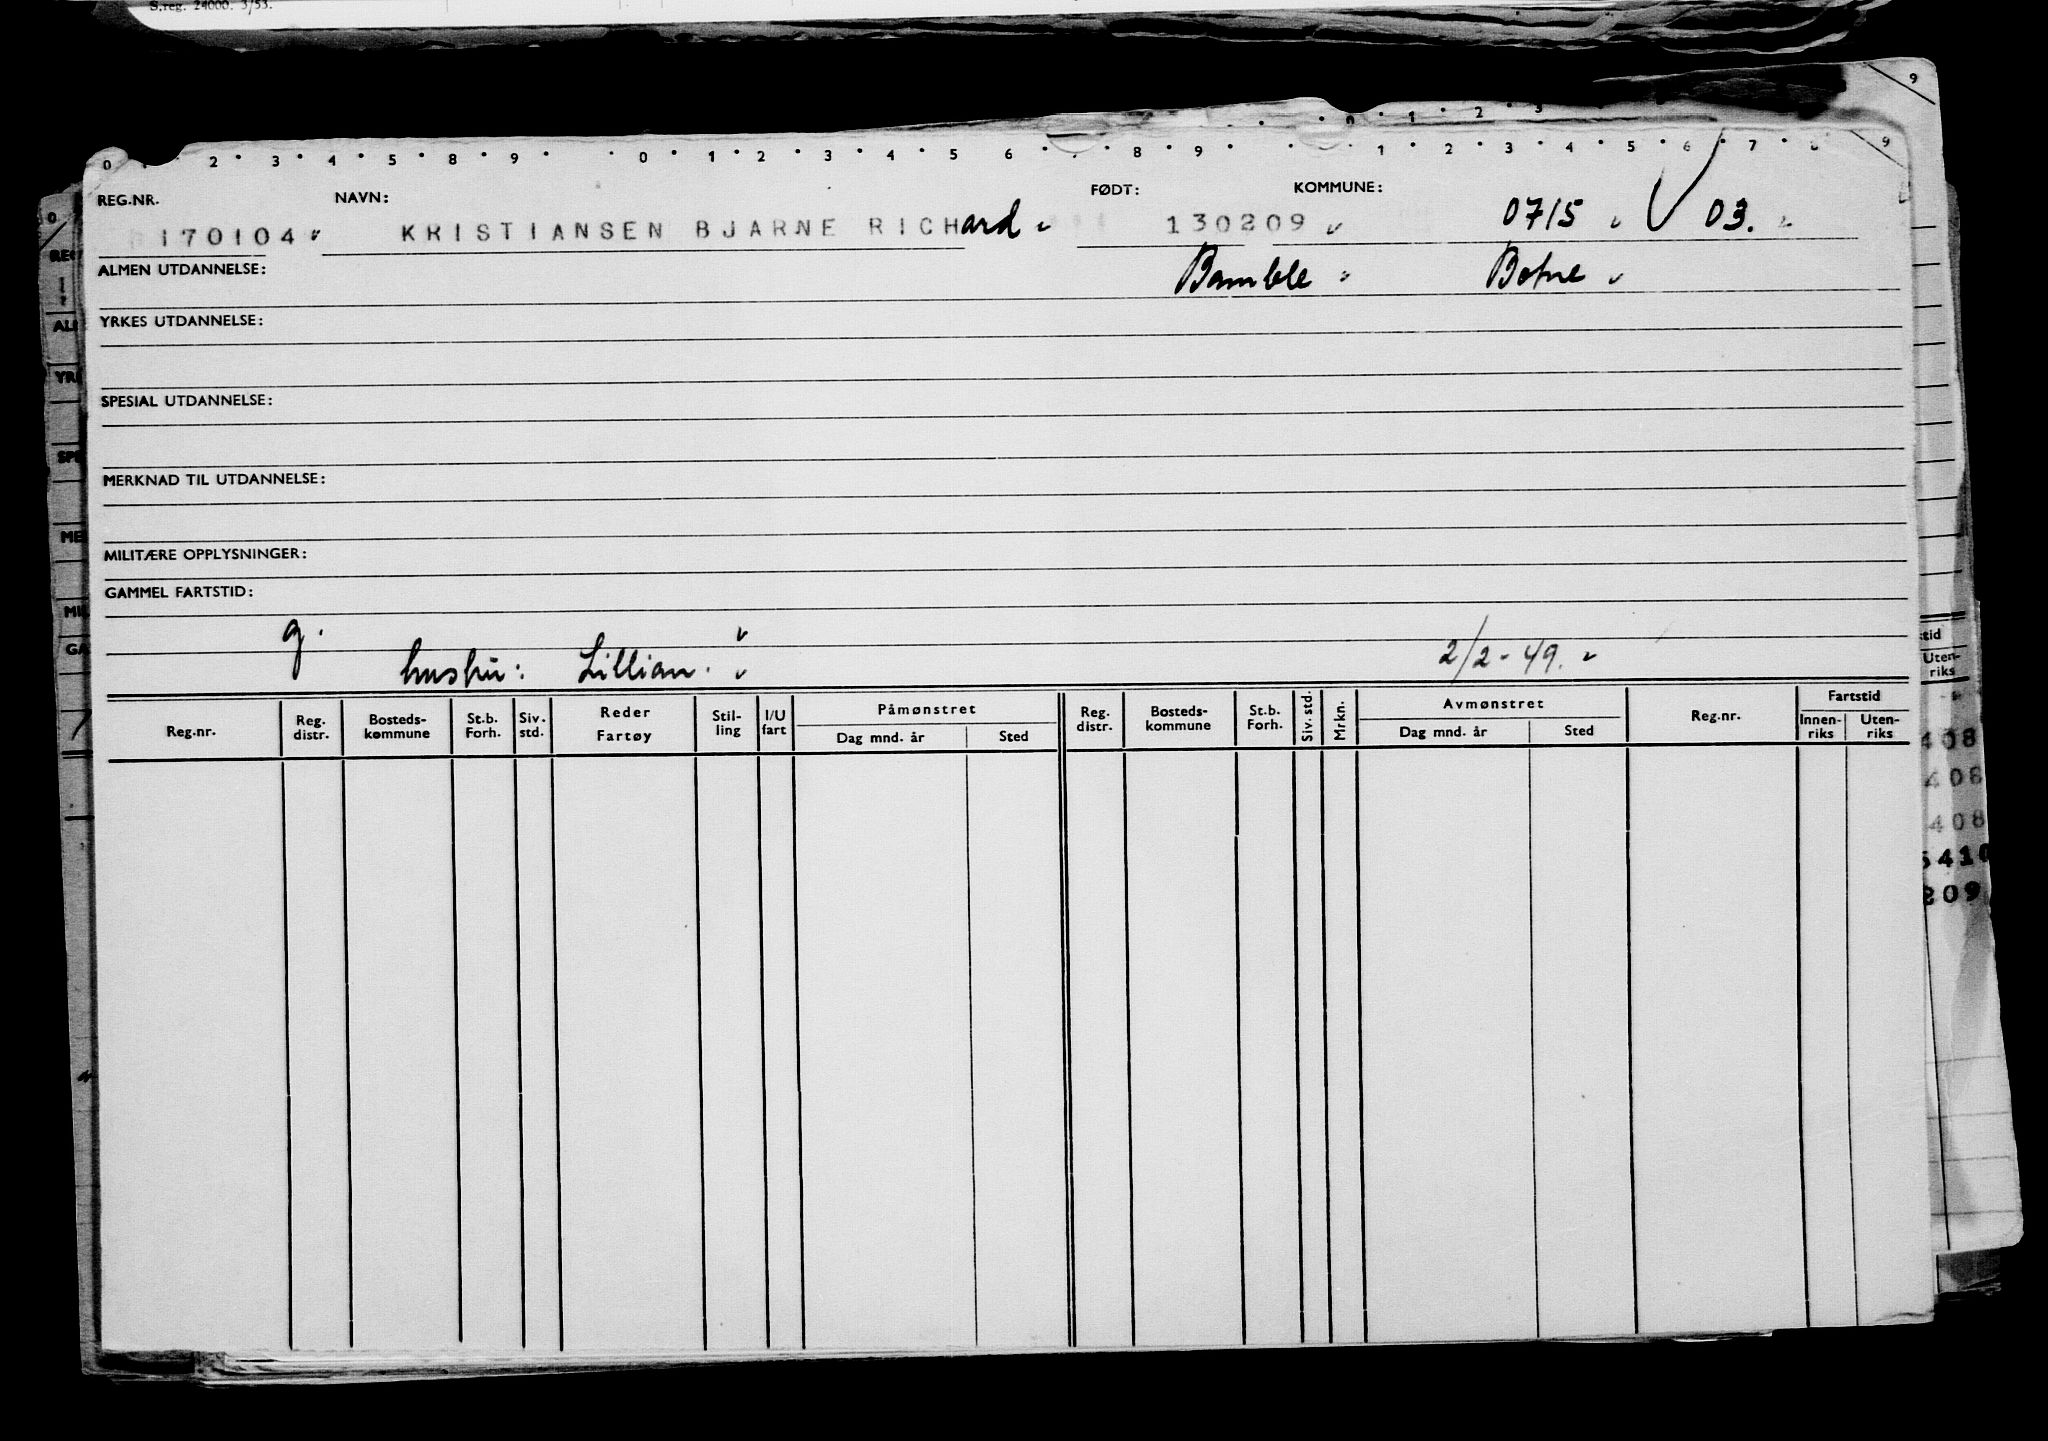 S.reg. 24000. 3/53.
9
0 1 2 3
0 2 3 4 5 8 9 0 1 2 3 4 5 6 8 9 1 2 3 4 5 6 7 8 9
REG.NR. NAVN: FØDT: KOMMUNE:
170104 KRISTIANSEN BJARNE RICHard 130209 0715 03.
ALMEN UTDANNELSE: Bamble Botne
YRKES UTDANNELSE:
SPESIAL UTDANNELSE:
MERKNAD TIL UTDANNELSE:
MILITÆRE OPPLYSNINGER:
GAMMEL FARTSTID:
g.
hustru: Lillian. 2/2-49.
Reg.nr. Reg. distr. Bosteds- kommune St.b. Forh. Siv. std. Reder Fartøy Stil- ling I/U fart Påmønstret Dag mnd. år Sted Reg. distr. Bosteds- kommune St.b. Forh. Siv. std. Mrkn. Avmønstret Dag mnd. år Sted Reg.nr. Fartstid Innen- riks Uten- riks
408
408
408
5410
209